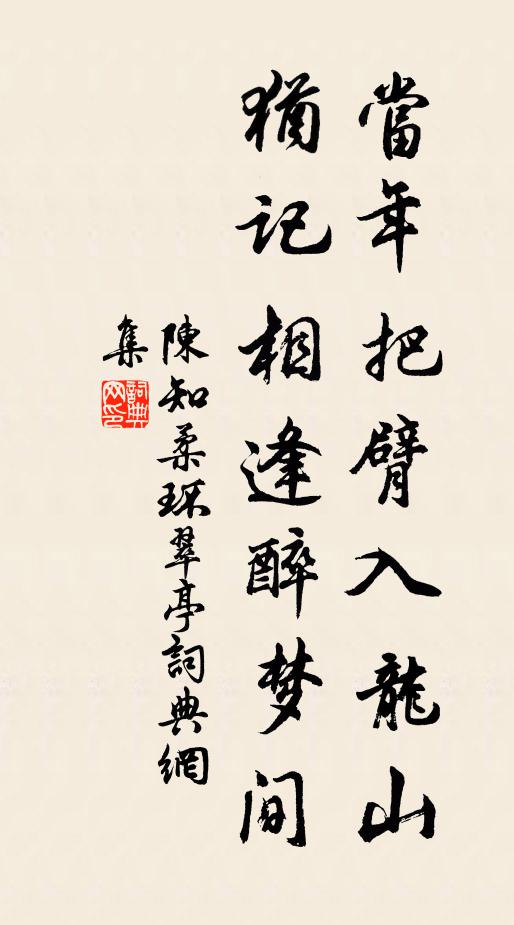 當年把臂入龍山
猶记相逢醉梦间
陳知柔环翠亭詞典網
集
詞典网印